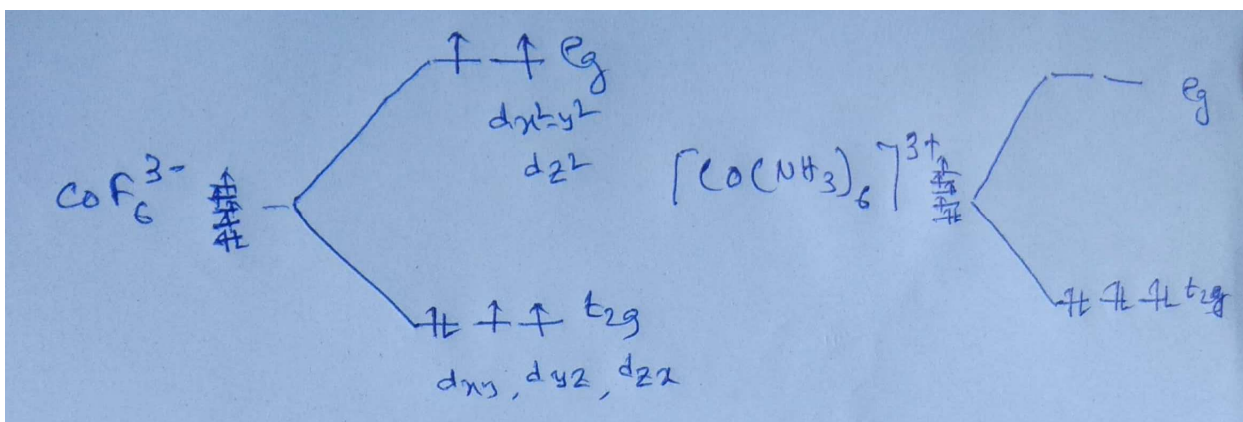 CoF₆³⁻
eg
dx²-y²
dz²
t₂g
dxy, dyz, dzx
[Co(NH₃)₆]³⁺
eg
t₂g